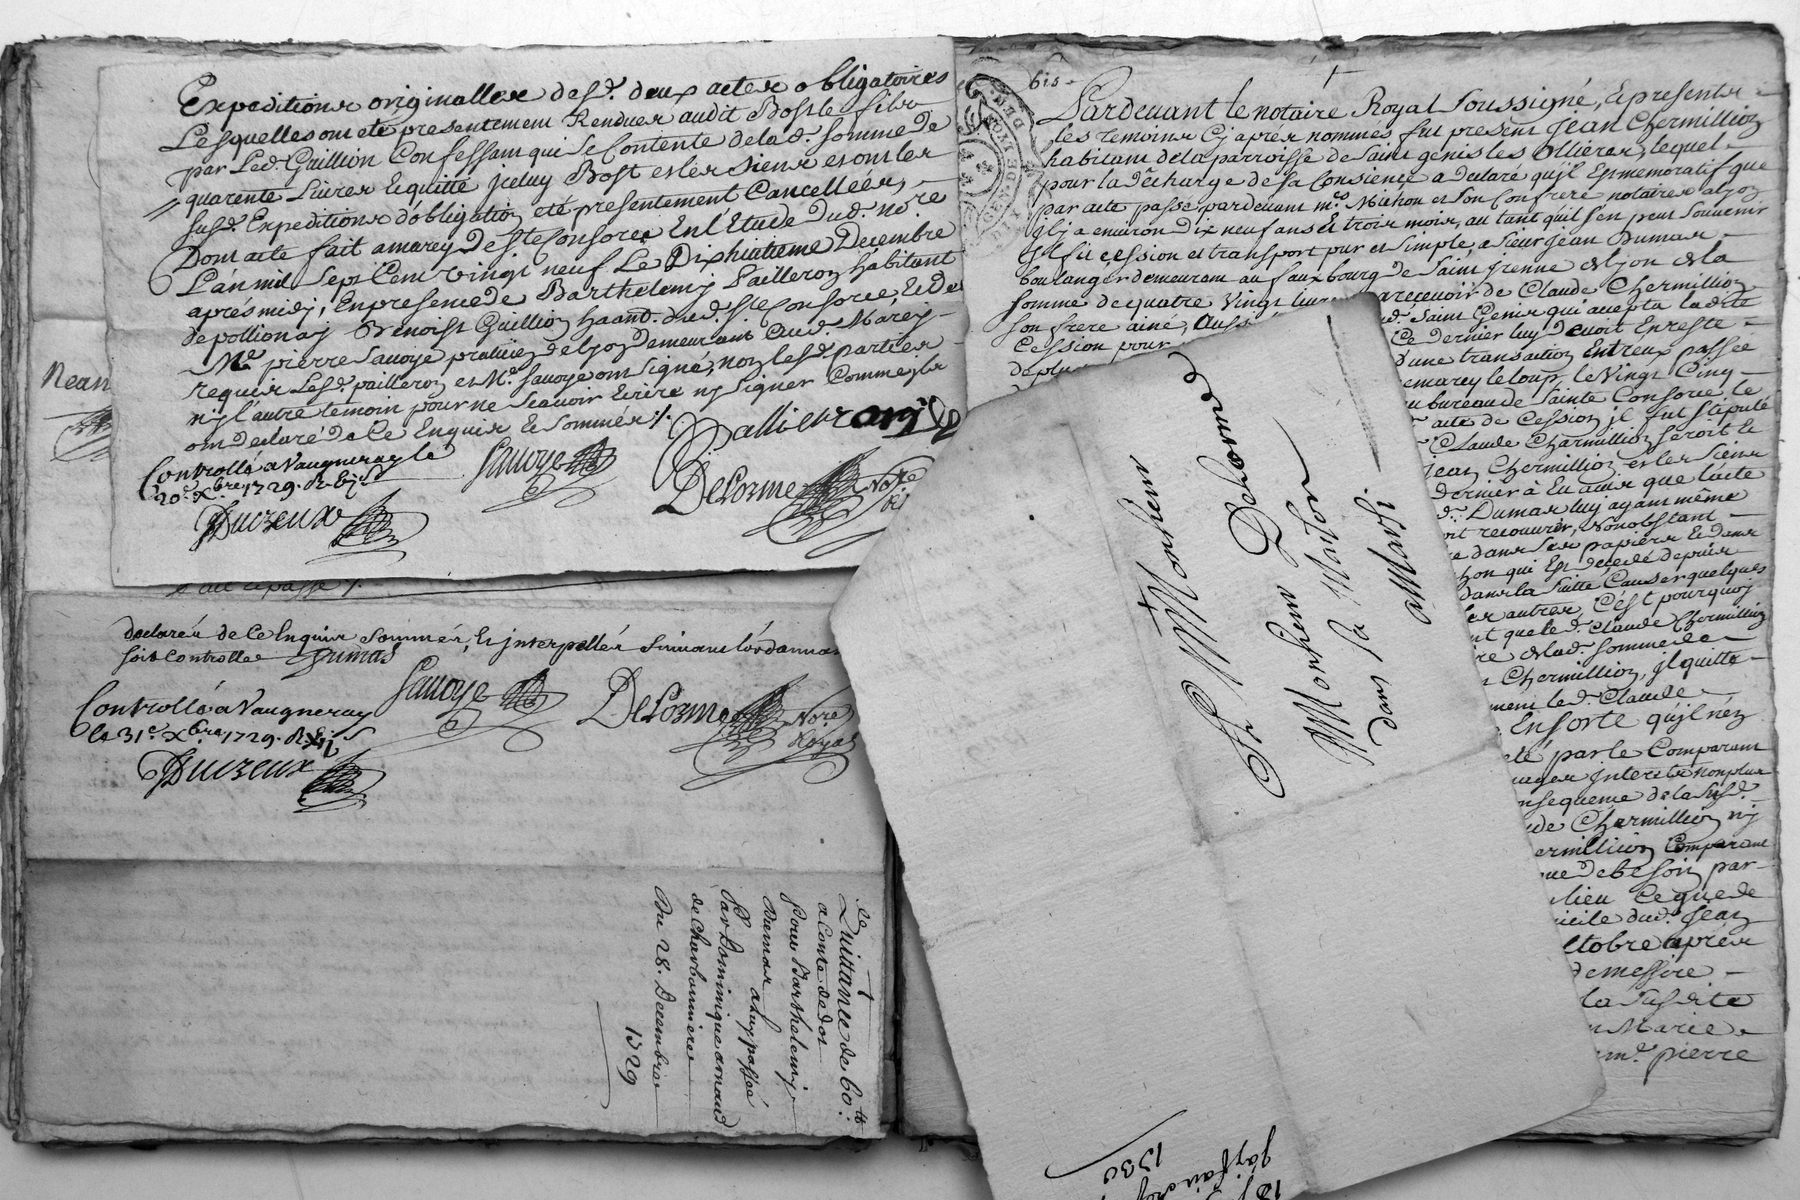 Expeditions originalles desd. deux actes obligatoires
Lesquelles ont eté presentement Rendues audit Bost le fils
par Led. Guillion Confessant qui se Contente de lad. somme de
quarente Livres Et quitte jceluy Bost et les siens et ont les
susd. Expeditions d'obligation eté presentement Cancellées,
Dont acte fait a marcy De Ste Consorce En l'Etude dud. no.re
L'an mil sept Cent vingt neuf Le Dixhuitieme Decembre
aprés midy, En presence de Barthelemy Pailleron habitant
de pollionay Benoist Guillion haant. dud. Ste Consorce, Et de
Me. pierre Sauoye praticien de lyon demeurant aud. Marcy
requis Lesd. pailleron et Me. Sauoye ont signé, non lesd. parties
ny l'autre temoin pour ne scauoir Ecrire ny signer Comme jls
ont declaré de Ce Enquis Et sommés /.
Controllé a Vaugneray le
20e. Xbre 1729. R.
Sauoye
Delorme Nore
Duizeux
Nean
declarés de Ce Enquis sommés, Et jnterpellés suiuant l'ordonnan
soit Controllé Dumas
Controllé a Vaugneray
le 31e. Xbre 1729. R. xij s
Sauoye
Delorme Nore
Royal
Duizeux
Quittance de 60.tt
a Conte de dot
Pour Barthelemy
Dumas a luy passée
Par Dominique arnaud
de Charbonniere
Du 28. Decembre
1729
bis
Pardeuant le notaire Royal soussigné, Et presents
les temoins Cy aprés nommés fut present Jean Chermillion
habitant de la parroisse de Saint genis les Ollieres, lequel
pour la décharge de sa Consience a declaré qu'jl Est memoratif que
par acte passé pardeuant me. Muhon et son Confrere notaires a lyon
jl y a environ Dix neuf ans Et trois mois, au tant qu'il s'en peut souuenir
jl fit cession et transport pur et simple, a sieur jean Dumas
boulanger demeurant au fauxbourg de Saint jrenne de lyon de la
somme de quatre Vingt liures a receuoir de Claude Chermillion
son frere ainé, aussi dud. Saint Genis qui accepta ladite
Cession pour Ce dernier luy deuoit En reste
d'une transaction Entreux passée
marcy le loup, le Vingt Cinq
u bureau de Sainte Consorce, le
acte de Cession jl fut stipulé
Claude Chermillion seroit le
Jean Chermillion et les siens
dernier à Eu auis que l'acte
d. Dumas luy ayant même
oit recouurer, Nonobstant
re dans ses papiers Et dans
hon qui Est décedé depuis
dans la suitte Causer quelques
les autres, C'est pourquoy
nt que led. Claude Chermillion
re de lad. somme de
n Chermillion, jl quitte
ment led. Claude
En sorte qu'jl n'En
eté par le Comparant
uager jnterets non plus
nsequence de la susd.
ude Chermillion ny
ermillion Comparant
ue de besoin par
lieu Ce que de
icile dud. Jean
ctobre aprés
de messire
la susdite
n Marie
me. pierre
Monsieur Delorme
dans St Consorce
a Marcy
1730